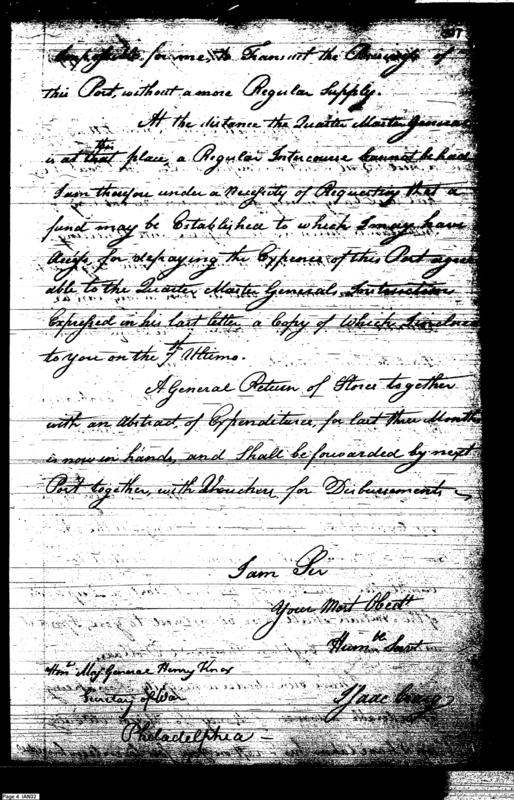 Impossible for me, to Transact the Business of
this Post, without a more Regular Supply.
At the distance the Quarter Master General
is at
this
that place, a Regular Intercourse Cannot be had
I am therefore under a Necessity of Requesting that a
fund may be Established to which I may have
Access for defraying the Expences of this Post agree
able to the Quarter Master Generals Instructions
Expressed in his last letter, a Copy of Which I inclosed
to You on the 7th Ultimo.
A General Return of Stores together
with an Abstract, of Expenditures, for last three Months
is now in hands, and Shall be forwarded by next
Post together, with Vouchers for Disbursements
I am Sir
Your Most Obedt
Humbe Servt
Isaac Craig
Honl Maj General Henry Knox
Secretary of War
Philadelphia
Page 4 IAN02